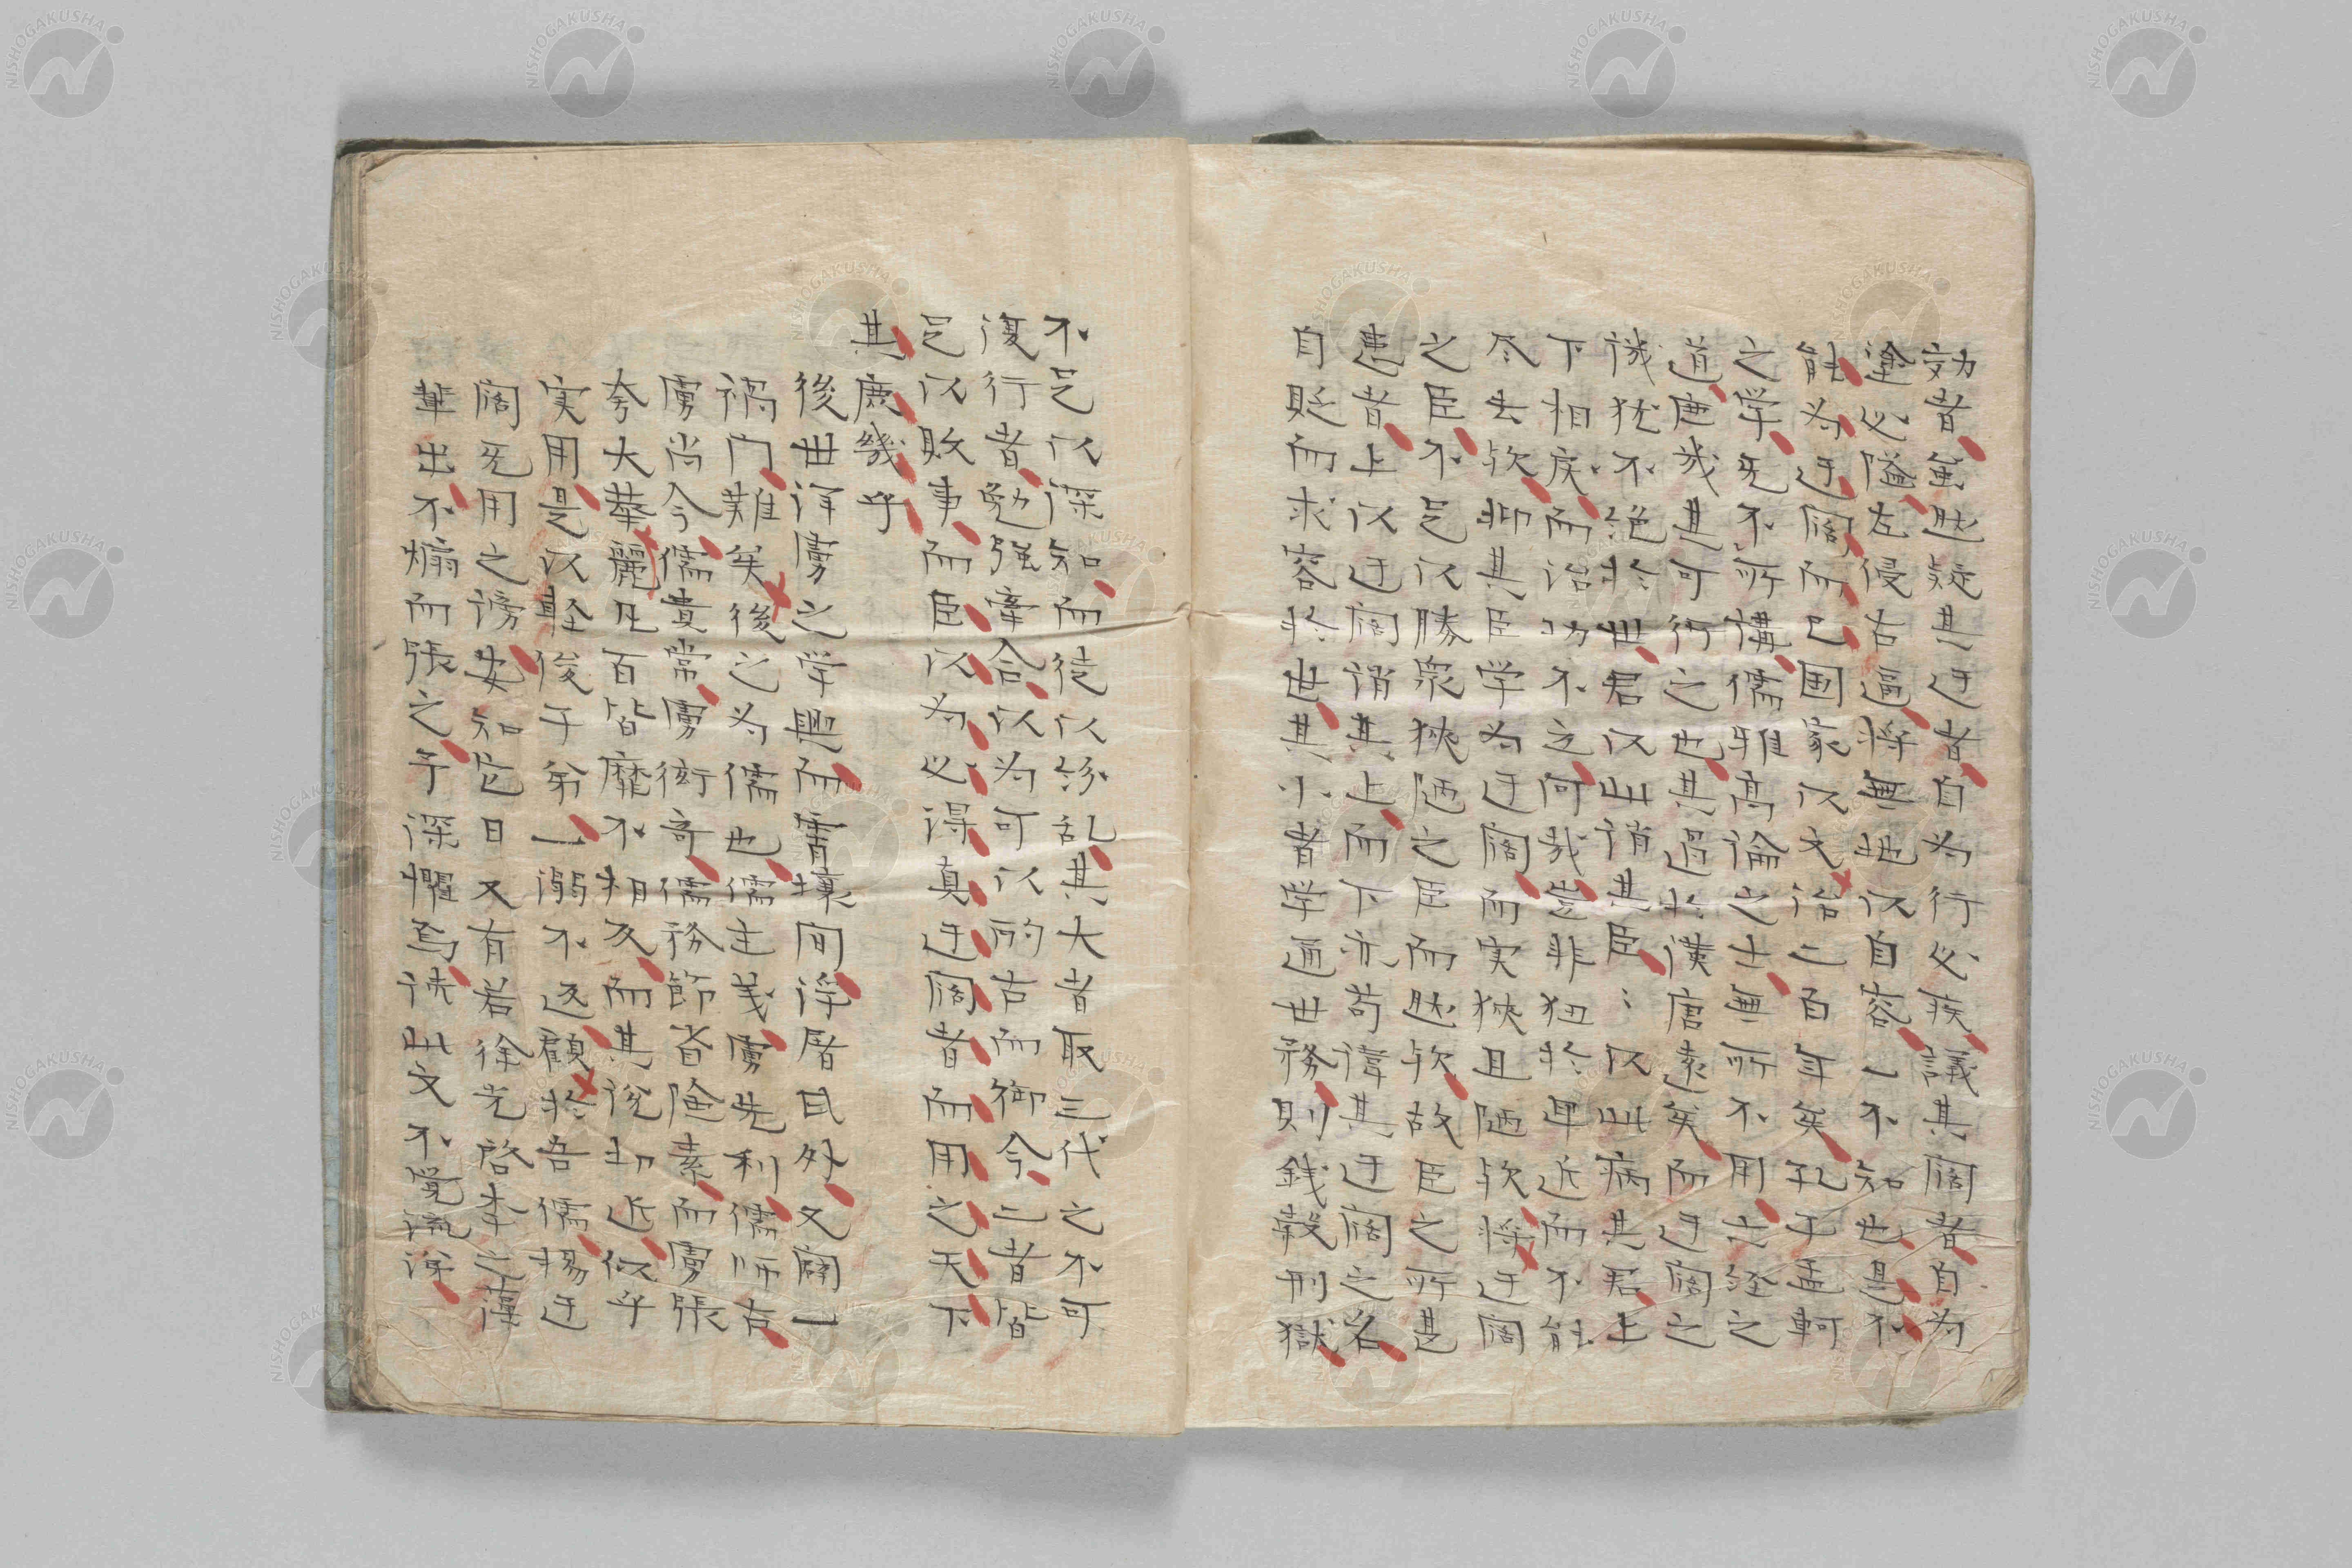 効者虽然疑其迂者自为行必疾議其闊者自为
塗必隘左侵右逼将無地以自容一不知也是不
能为迂闊而已国家以文治二百年矣孔子孟軻
之学无不所講儒雅高論之士無所不用六経之
道庶幾其可行之也其過於漢唐遠矣而迂闊之
譏犹不絶於世君以此誚其臣〻以此病其君上
下相戻而治功不之何哉豈非狃於卑近而不能
尽去欤抑其臣学为迂闊而実狭且陋欤将迂闊
之臣不足以勝衆狭陋之臣而然欤故臣之所甚
患者上以迂闊誚其上而下亦苟諱其迂闊之名
自貶而求容於世其小者学通世務則銭穀刑獄
不足以深知而徒以紛乱其大者取三代之不可
復行者勉强牽合以为可以酌古而御今二者皆
足以敗事而臣以为必得真迂闊者而用之天下
其庶幾乎
後世淫虜之学興而霄壤間浮屠氏外又闢一
禍門難矣後之为儒也儒主義虜先利儒师古
虜尚今儒貴常虜衒奇儒務節省陰素而虜張
夸大華麗凡百皆靡不相反而其说切近似乎
実用是以軽俊子弟一溺不返顧於吾儒揚迂
闊无用之謗安知它日又有若徐光啓李之藻
輩出不煽而張之予深懼焉読此文不覚流涕